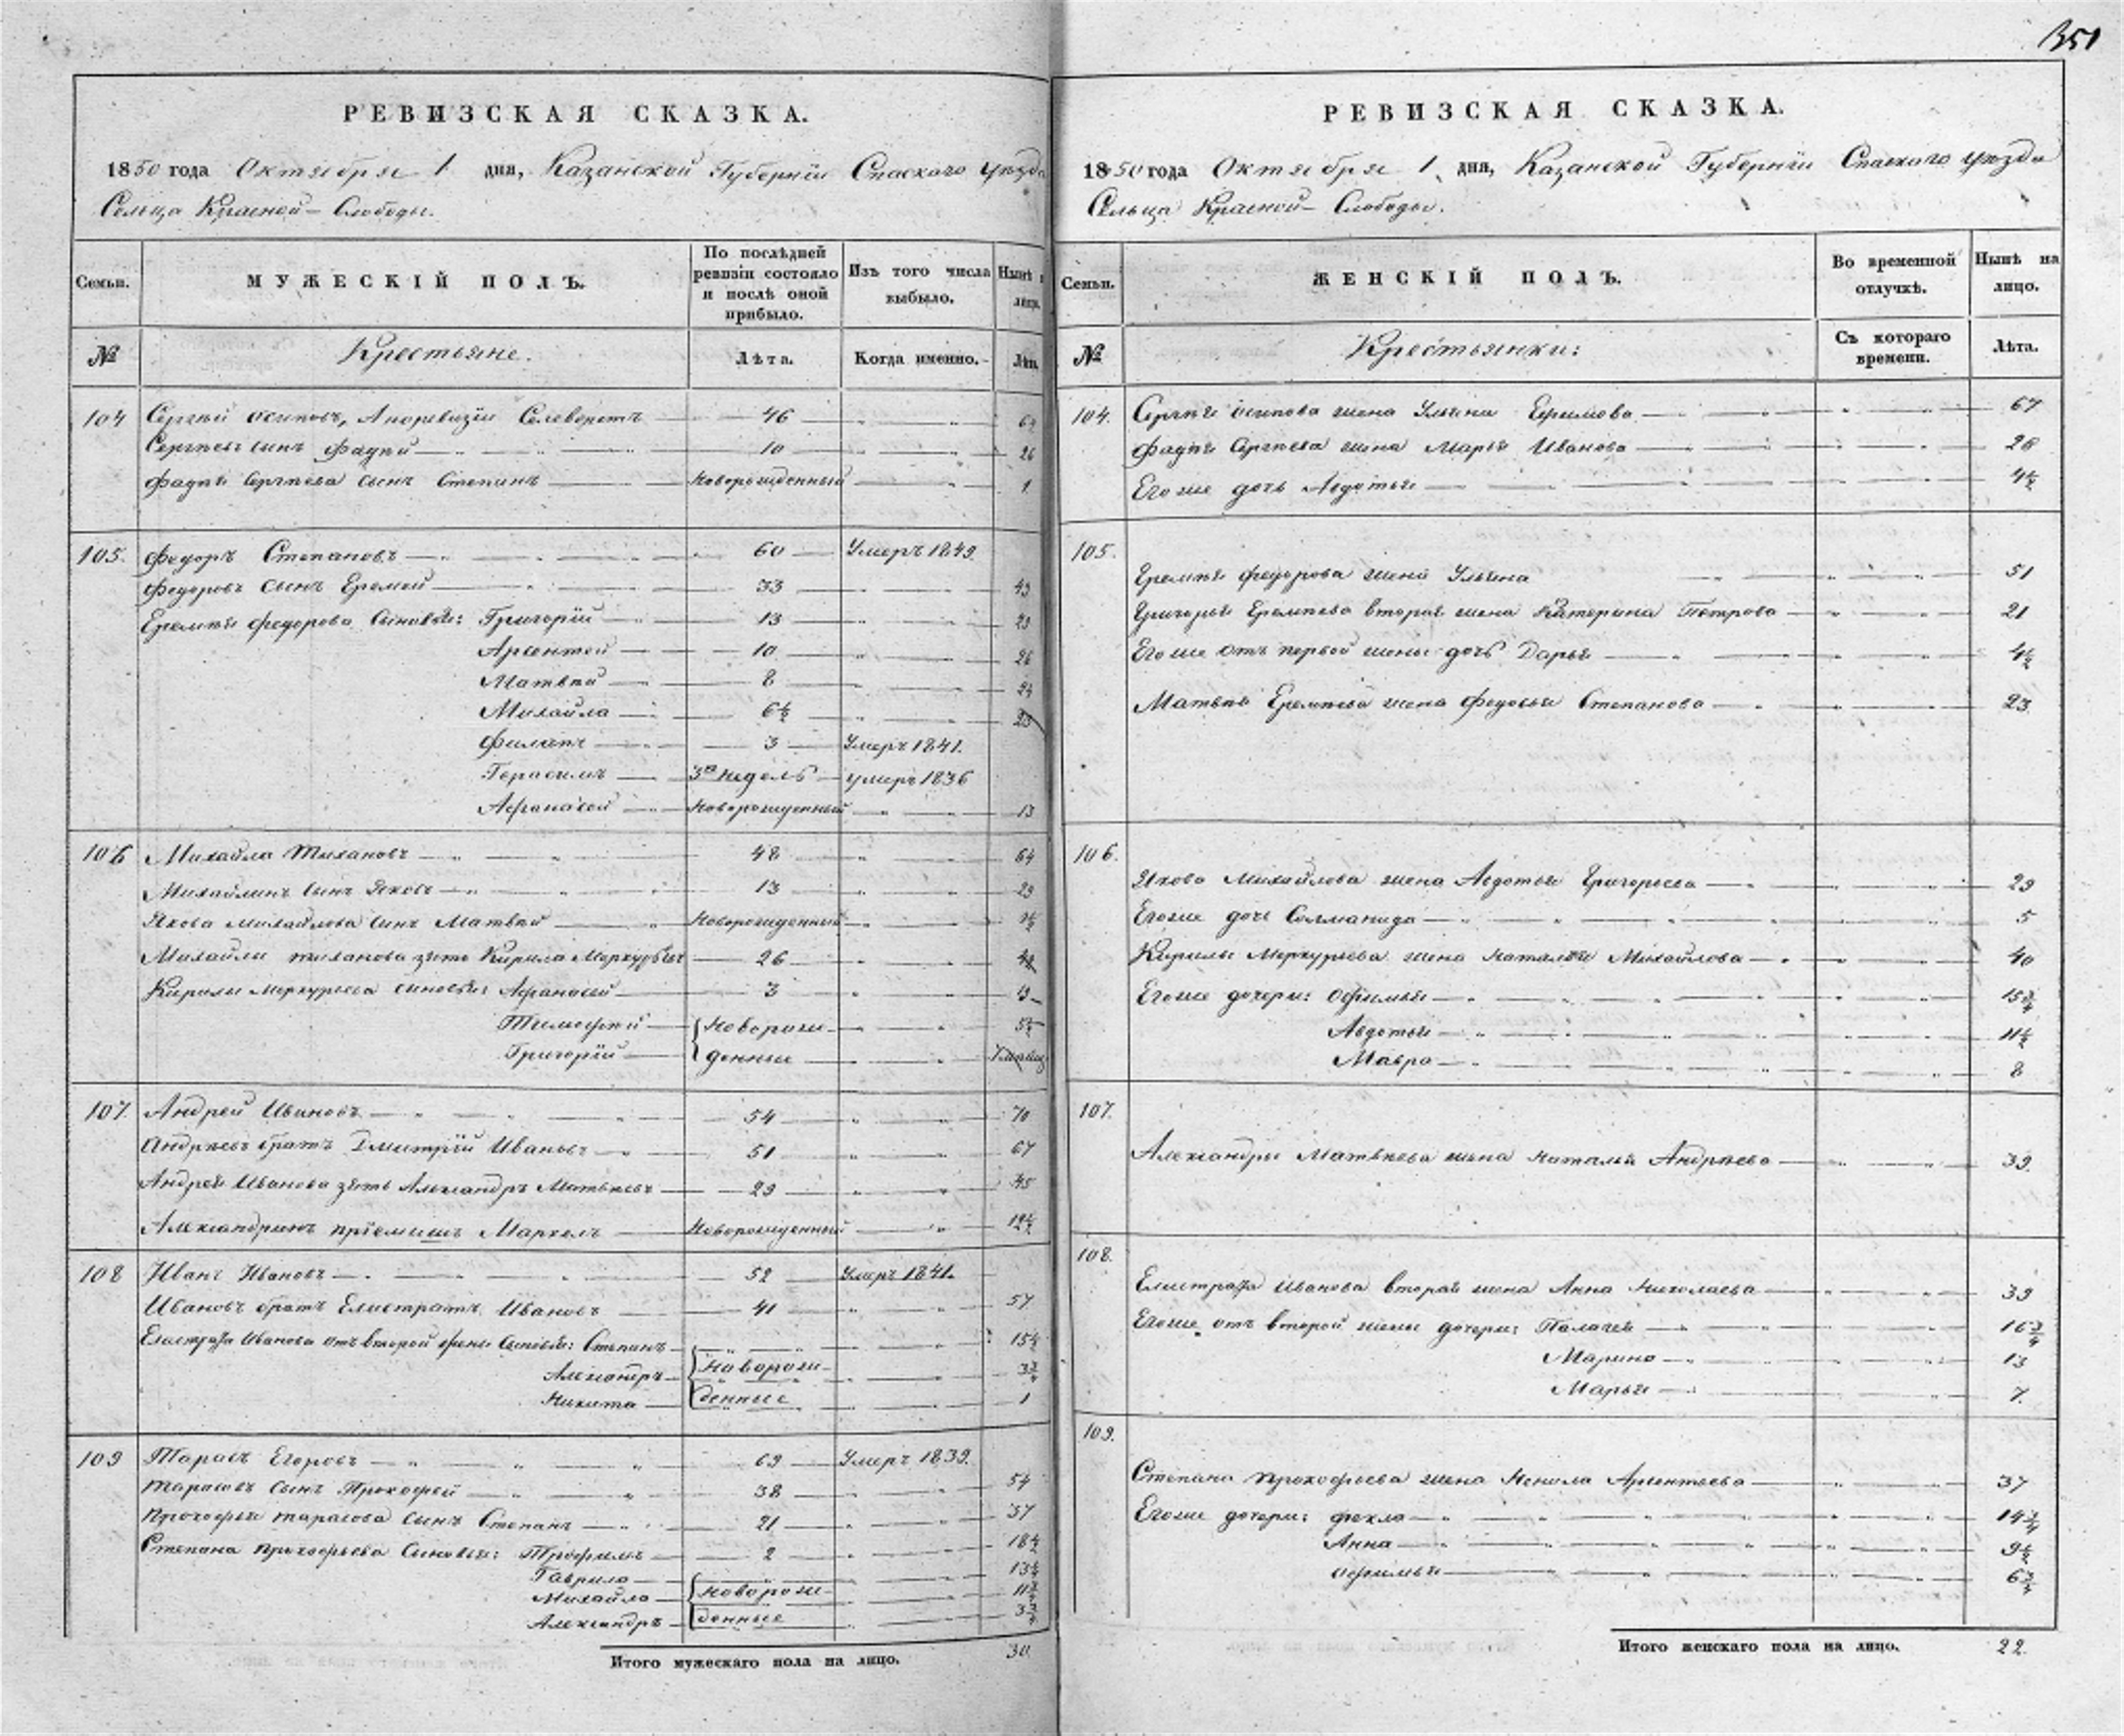 351
РЕВИЗСКАЯ СКАЗКА.
1850 года Октября 1 дня, Казанской Губерніи Спаского уѣзда
Сельца Красной-Слободы.
Семьи. МУЖЕСКІЙ ПОЛЪ. По послѣдней ревизіи состояло и послѣ оной прибыло. Изъ того числа выбыло. Нынѣ на лицо.
№ Крестьяне. Лѣта. Когда именно. Лѣта.
104 Сергѣй Осиповъ, 46
Сергѣевъ сынъ Фадѣй 10 26
Фадѣя Сергѣева сынъ Степанъ Новорожденный 1
105. Федоръ Степановъ 60 Умеръ 1849.
Федоровъ сынъ Еремей 33 49
Еремѣя Федорова сыновья: Григорій 13 29
Арсентей 10 26
Матвѣй 8 24
Михайла 6½ 23
Филипъ 3 Умеръ 1841.
Герасимъ 3хъ недель умеръ 1836
Афонасей Новорожденный 13
106 Михайла Тихановъ 48 64
Михайлинъ сынъ Яковъ 13 29
Якова Михайлова сынъ Матвѣй Новорожденный
Михайлы Тиханова зять Кирила Меркурьевъ 26 42
Кирилы Меркурьева сыновья: Афанасей 3 19
Тимофей Новорож-
Григорій денные
107. Андрей Ивановъ 54 70
Андрѣевъ братъ Дмитрій Ивановъ 51 67
Андрея Иванова зять Александръ Матвѣевъ 29 45
Александринъ пріемышъ Маркелъ Новорожденный 12½
108 Иванъ Ивановъ 52 Умеръ 1841.
Ивановъ братъ Елистратъ Ивановъ 41 57
Елистрата Иванова отъ второй жены сыновья: Степанъ 15½
Александръ Новорож- 3¾
Никита денные 1
109 Тарасъ Егоровъ 69 Умеръ 1839.
Тарасовъ сынъ Прокофей 38 54
Прокофья Тарасова сынъ Степанъ 21 37
Степана Прокофьева сыновья: Трофимъ 2 18½
Гаврило 13½
Михайло Новорож- 11¾
Александръ денные 3¾
Итого мужескаго пола на лицо. 30
РЕВИЗСКАЯ СКАЗКА.
1850 года Октября 1 дня, Казанской Губерніи Спаского уѣзда
Сельца Красной-Слободы.
Семьи. ЖЕНСКІЙ ПОЛЪ. Во временной отлучкѣ. Нынѣ на лицо.
№ Крестьянки: Съ котораго времени. Лѣта.
104. Сергѣя Осипова жена Ульяна Ефимова 67
Фадѣя Сергѣева жена Марья Иванова 28
Его же дочь Авдотья 4½
105. Еремѣя Федорова жена Ульяна 51
Григорья Еремѣева вторая жена Катерина Петрова 21
Его же отъ первой жены дочь Дарья 4½
Матвѣя Еремѣева жена Федосья Степанова 23
106. Якова Михайлова жена Авдотья Григорьева 29
Его же дочь Соломанида 5
Кирилы Меркурьева жена Наталья Михайлова 40
Его же дочери: Офимья 15¾
Авдотья 11½
Мавра 8
107. Александры Матвѣева жена Наталья Андрѣева 39.
108. Елистрата Иванова вторая жена Анна Николаева 39
Его же отъ второй жены дочери: Палагея 16¾
Марина 13
Марья 7.
109. Степана Прокофьева жена Арсентьева 37
Его же дочери: Фекла 14¾
Анна 9½
Офимья 6¾
Итого женскаго пола на лицо. 22.